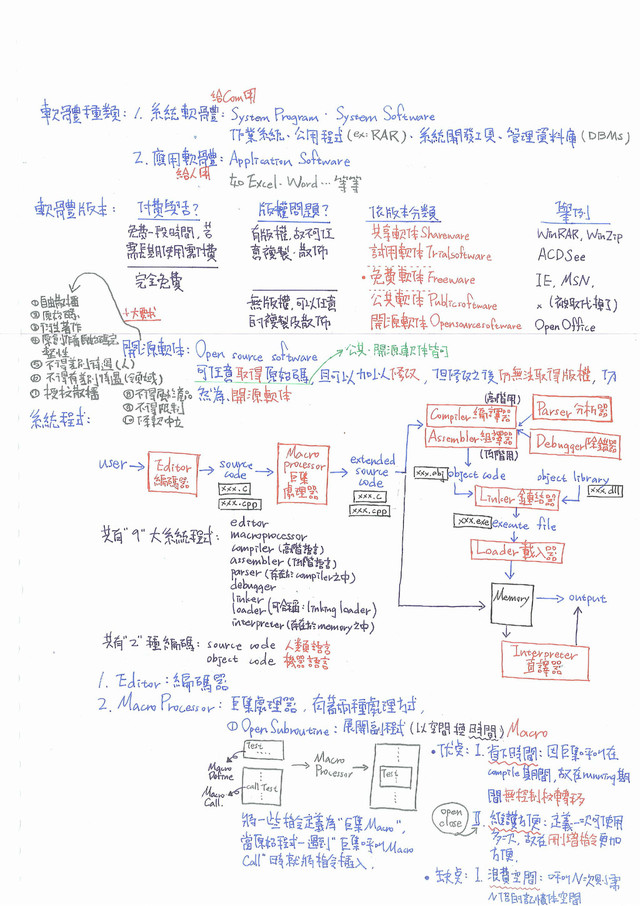 給Com用
軟體種類：1. 系統軟體：System Program · System Software
作業系統、公用程式(ex: RAR)、系統開發工具、管理資料庫(DBMS)
2. 應用軟體：Application Software
給人用
如 Excel · Word … 等等
軟體版本： 付費與否？ 版權問題？ 依版本分類 舉例
免費一段時間, 若 有版權, 故不可任 共享軟体 Shareware WinRAR, WinZip
需長期使用需付費 意複製·散佈 試用軟体 Trialsoftware ACDSee
完全免費 • 免費軟体 Freeware IE, MSN,
無版權, 可以任意 公共軟体 Publicsoftware × (被取代掉了)
的複製及散佈 開源軟体 Opensourcesoftware OpenOffice
①自由散播
②原始碼
③衍生著作
完整性
⑤不得差別待遇(人)
⑥不得有差別待遇(領域)
⑦授權散播
⑨不得限制
⑩技術中立
開源軟体：Open source software
公共·開源軟体皆可
可任意取得原始碼, 且可以加以修改, 但修改之後仍無法取得版權, 仍
然為、開源軟体
系統程式：
user → Editor 編碼器 → source code → Macro processor 巨集處理器 → extended source code
xxx.c
xxx.cpp
xxx.c
xxx.cpp
(高階用)
Compiler 編譯器
Parser 分析器
Assembler 組譯器
Debugger 除錯器
(低階用)
xxx.obj object code object library
xxx.dll
Linker 鏈結器
xxx.exe execute file
Loader 載入器
Memory → output
Interpreter
直譯器
共有"9"大系統程式：
editor
macroprocessor
compiler (高階語言)
assembler (低階語言)
parser (存在於compiler之中)
debugger
linker
loader (可合稱：linking loader)
interpreter (存在於memory之中)
共有"2"種編碼：source code 人類語言
object code 機器語言
1. Editor：編碼器
2. MacroProcessor：巨集處理器, 有著兩種處理方式,
① OpenSubroutine：展開副程式(以空間換時間) Macro
Test
……
Macro Define
Macro Call.
call Test
Macro Processor
Test
將一些指令定義為"巨集Macro",
當原始程式一遇到"巨集呼叫Macro
Call"時就將指令插入.
• 優点：I. 省下時間：因巨集呼叫在
compile期間, 故在running期
間無控制權轉移
open
close
II. 維護方便：定義一次可使用
多次, 故在刪增指令更加
方便.
• 缺点：I. 浪費空間：呼叫N次則需
N倍的記憶体空間